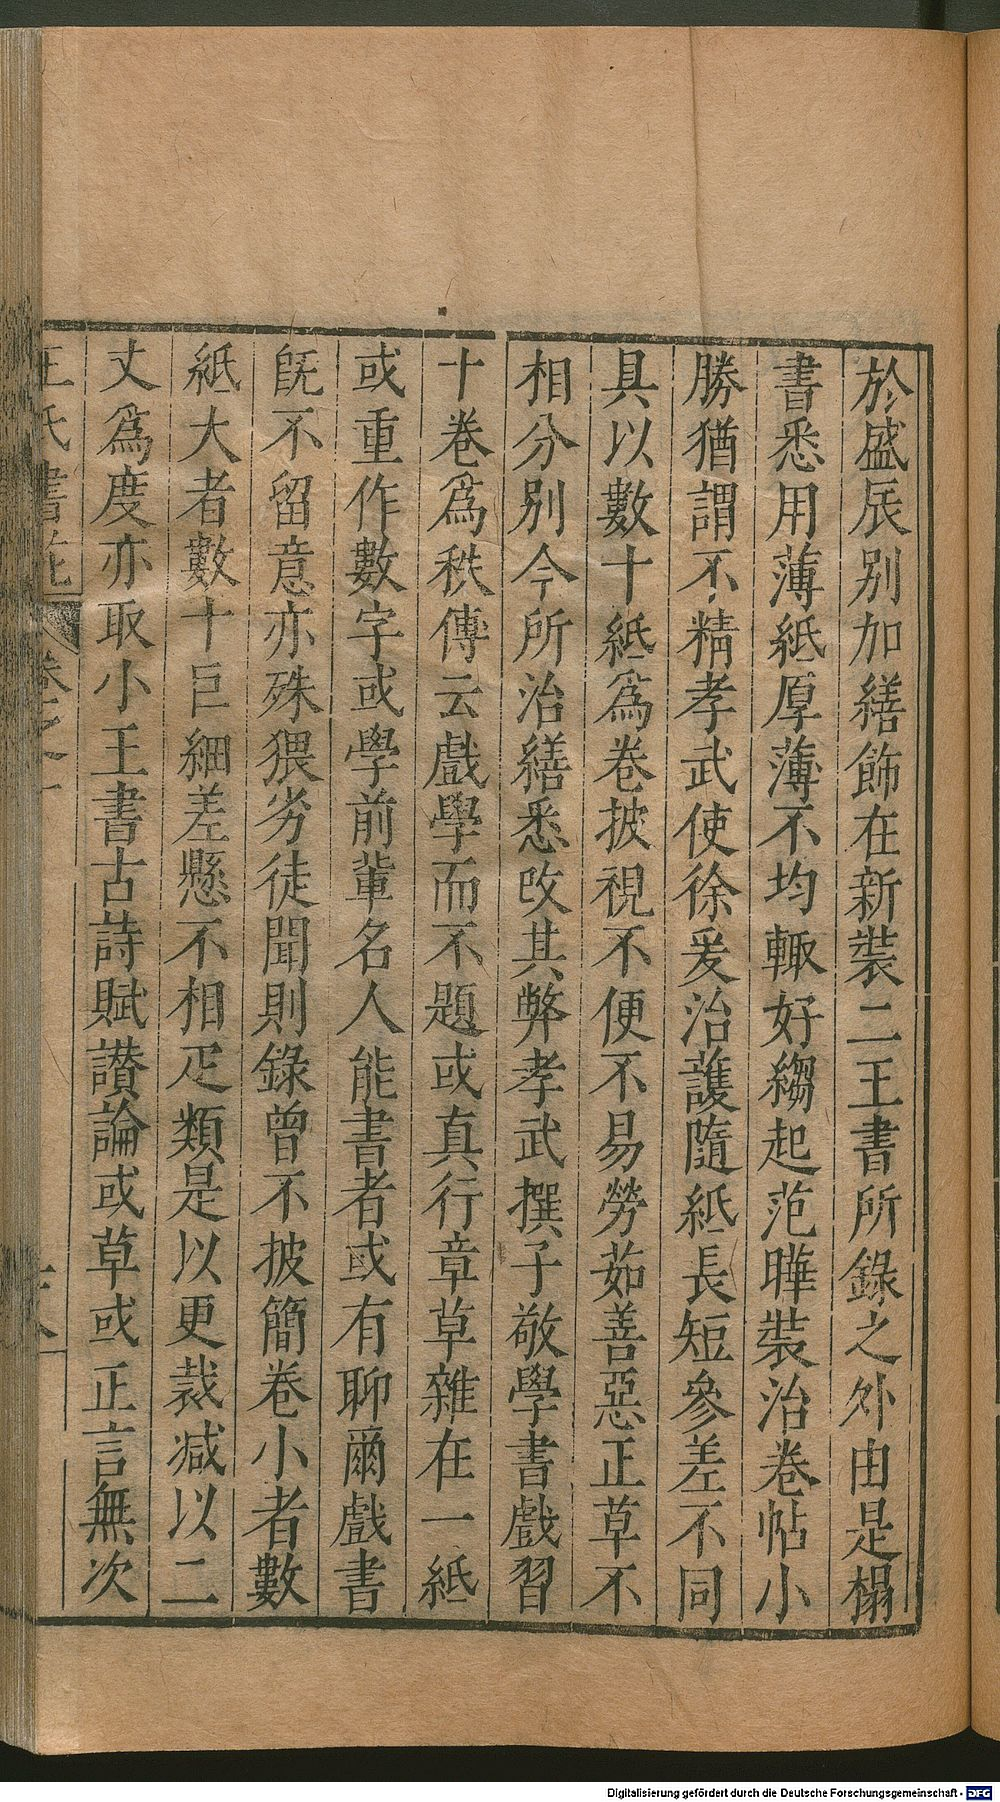 於盛辰别加繕飾在新裝二王書所錄之外由是榻
書悉用薄紙厚薄不均輙好縐起范曄裝治卷帖小
勝猶謂不精孝武使徐爰治護隨紙長短參差不同
具以數十紙爲卷披視不便不易勞茹善惡正草不
相分别今所治繕悉改其弊孝武撰子敬學書戲習
十卷爲秩傳云戲學而不題或真行章草雜在一紙
或重作數字或學前輩名人能書者或有聊爾戲書
旣不留意亦殊猥劣徒聞則錄曾不披簡卷小者數
紙大者數十巨細差懸不相疋類是以更裁减以二
丈爲度亦取小王書古詩賦讃論或草或正言無次
王氏書苑 卷之一
Digitalisierung gefördert durch die Deutsche Forschungsgemeinschaft - DFG